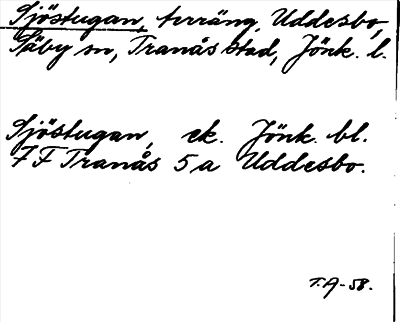 Sjöstugan, terräng, Uddesbo,
Säby sn, Tranås stad, Jönk. l.
Sjöstugan, ek. Jönk. bl.
7 F Tranås 5 a Uddesbo.
T.A-58.